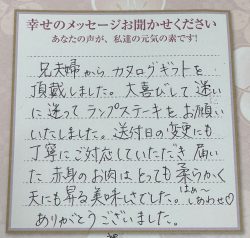 幸せのメッセージお聞かせください
あなたの声が、私達の元気の素です!
兄夫婦からカタログギフトを
頂戴しました。大喜びして迷い
に迷ってランプステーキをお願い
いたしました。送付日の変更にも
丁寧にご対応していただき届い
た赤身のお肉はとっても柔らかく
天にも昇る美味しさでした。はぁ〜しあわせ♡
ありがとうございました。